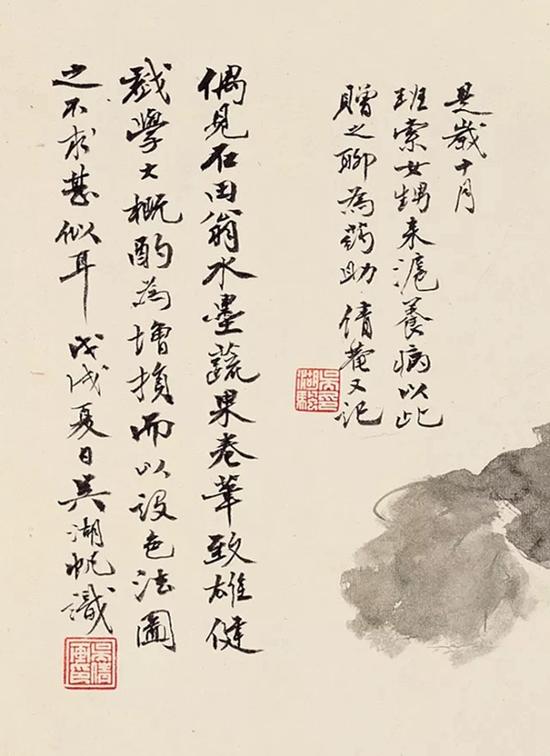 是歲十月
班索女甥來滬養病以此
贈之聊為藥助 倩菴又記
偶見石田翁水墨蔬果卷筆致雄健
戲學大概酌為增損而以設色法圖
之不求甚似耳 戊戌夏日吳湖帆識